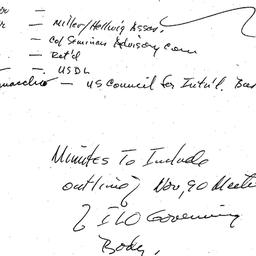 — Miller/Hellwig Assoc.
— Co/ Seminar Advisory Com
— Ret'd
— USDL
— US Council for Int'l. Bus
Minutes To Include
outline of Nov, 90 Meeti
of ILO Governing
Body.